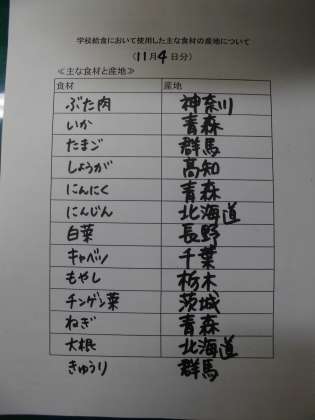 学校給食において使用した主な食材の産地について
(11月4日分)
≪主な食材と産地≫
食材 産地
ぶた肉 神奈川
いか 青森
たまご 群馬
しょうが 高知
にんにく 青森
にんじん 北海道
白菜 長野
キャベツ 千葉
もやし 栃木
チンゲン菜 茨城
ねぎ 青森
大根 北海道
きゅうり 群馬